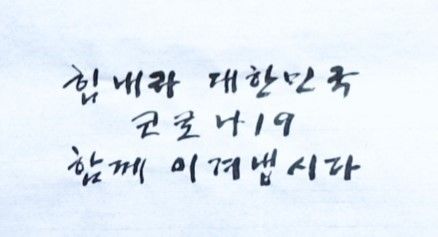 힘내라 대한민국
코로나19
함께 이겨냅시다